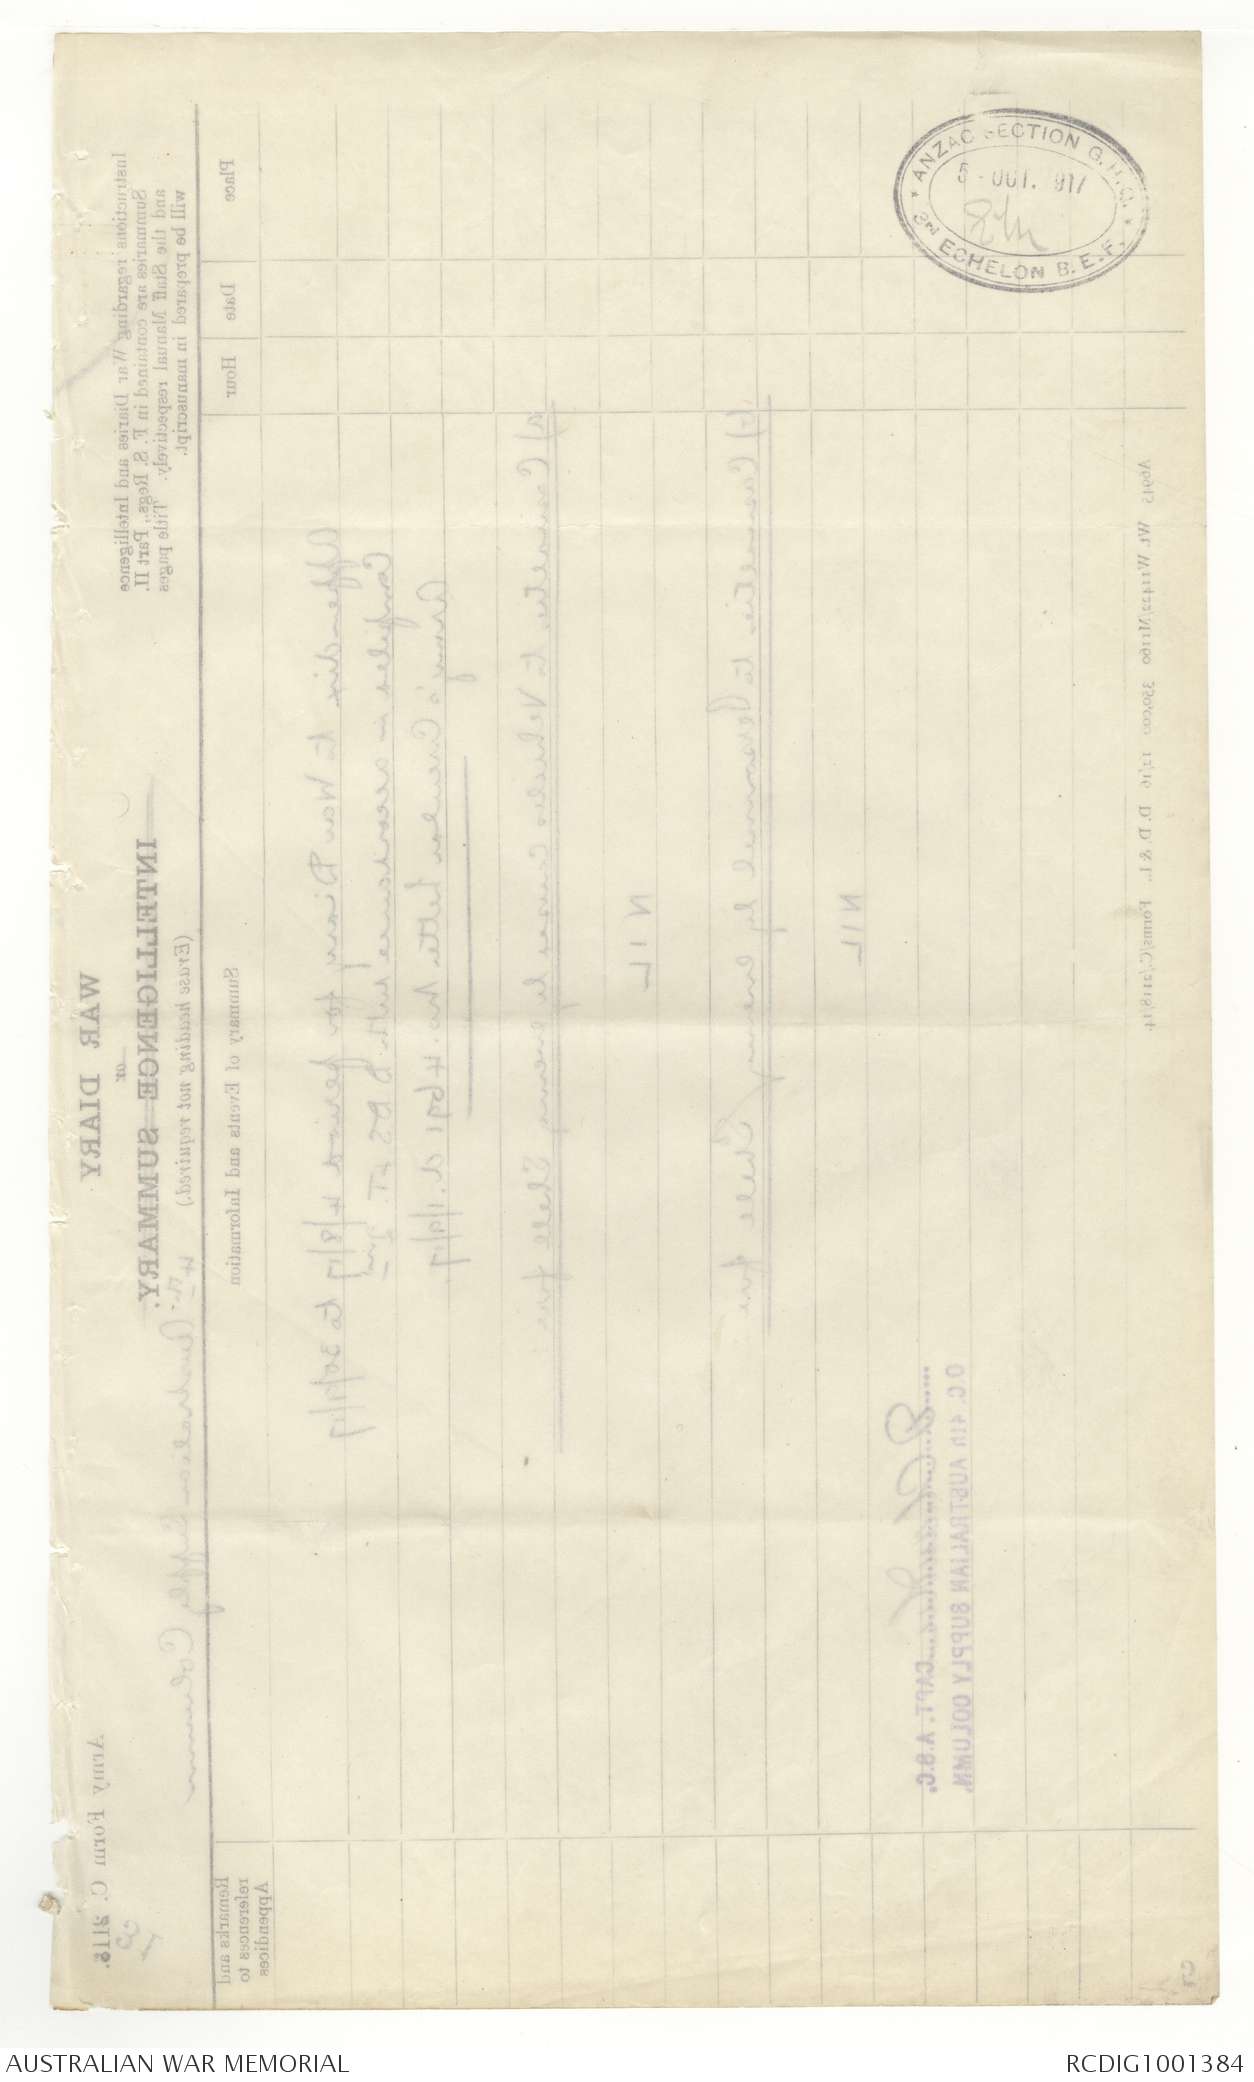 ANZAC SECTION G.H.Q.
5 - OCT. 917
3RD ECHELON B.E.F.
Army Form C. 2118.
WAR DIARY
or
INTELLIGENCE SUMMARY.
(Erase heading not required.)
4th Australian Supply Column
Instructions regarding War Diaries and Intelligence
Summaries are contained in F. S. Regs., Part II.
and the Staff Manual respectively. Title pages
will be prepared in manuscript.
Place
Date
Hour
Summary of Events and Information
Remarks and
references to
Appendices
Appendix to War Diary for period 4/8/17 to 30/9/17
Compiled in accordance with D D S & T.
Army's Circular letter No. 4691 d. 1/9/17.
a) Casualties to Vehicles caused by enemy Shell fire
NIL
b) Casualties to Personnel by enemy Shell fire
NIL
CAPT. A.S.C.
O.C. 4th AUSTRALIAN SUPPLY COLUMN.
A6945 Wt. W11422/M1160 350,000 12/16 D. D. & L. Forms/C/2118/14.
AUSTRALIAN WAR MEMORIAL
RCDIG1001384